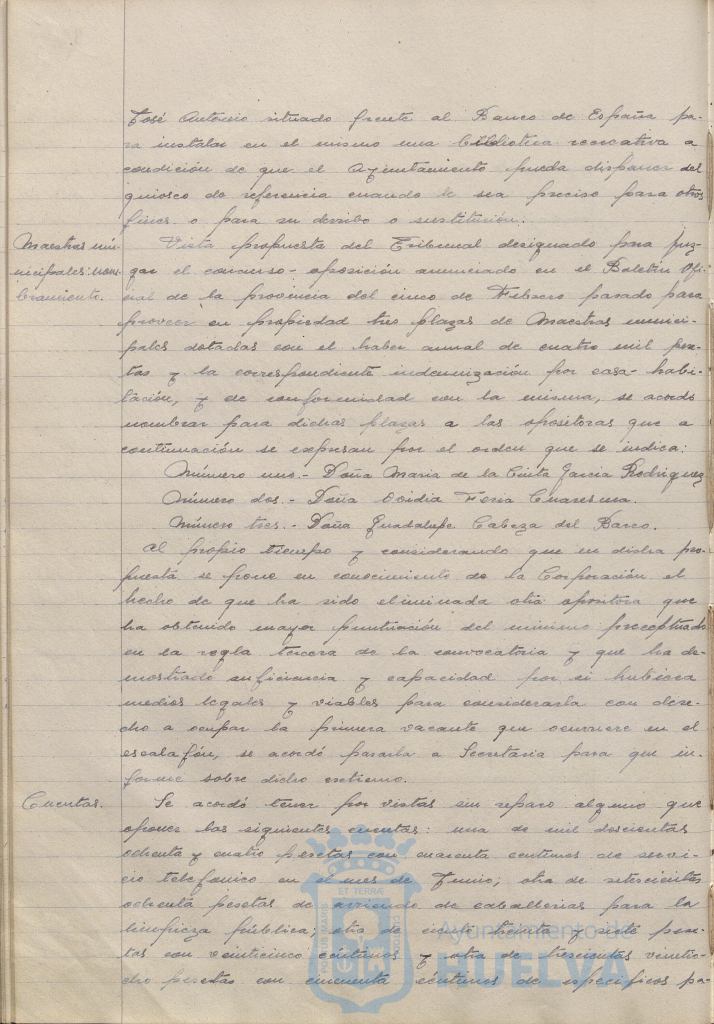 José Antonio situado frente al Banco de España pa-
ra instalar en el mismo una biblioteca recreativa a
condición de que el Ayuntamiento pueda disponer del
quiosco de referencia cuando le sea preciso para otros
fines o para su derribo o sustitución.
Maestras mu-
nicipales: nom-
bramiento.
Vista propuesta del Tribunal designado para juz-
gar el concurso-oposición anunciado en el Boletín Ofi-
cial de la provincia del cinco de Febrero pasado para
proveer en propiedad tres plazas de Maestras munici-
pales dotadas con el haber anual de cuatro mil pese-
tas y la correspondiente indemnización por casa-habi-
tación, y de conformidad con la misma, se acordó
nombrar para dichas plazas a las opositoras que a
continuación se expresan por el orden que se indica:
Número uno.- Doña Maria de la Cinta Garcia Rodriguez
Número dos.- Doña Ovidia Foria Cuaresma.
Número tres.- Doña Guadalupe Cabeza del Barco.
Al propio tiempo y considerando que en dicha pro-
puesta se pone en conocimiento de la Corporación el
hecho de que ha sido eliminada otra opositora que
ha obtenido mayor puntuación del minimo preceptuado
en la regla tercera de la convocatoria y que ha de-
mostrado suficiencia y capacidad por si hubiera
medios legales y viables para considerarla con dere-
cho a ocupar la primera vacante que ocurriere en el
escalafón, se acordó pasarla a Secretaria para que in-
forme sobre dicho extremo.
Cuentas.
Se acordó tener por vistas sin reparo alguno que
oponer las siguientes cuentas: una de mil doscientas
ochenta y cuatro pesetas con cuarenta centimos de servi-
cio telefónico en el mes de Junio; otra de setecientas
ochenta pesetas de arriendo de caballerias para la
limpieza pública; otra de treinta y siete pese-
tas con veinticinco centimos y otra de trescientas veintio-
cho pesetas con cincuenta centimos de especificos pa-
PORTUS MARIS
ET TERRAE
CUSTODIA
Ayuntamiento de
HUELVA